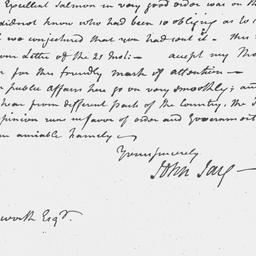 Excellent Salmon in very good order was on th
did not know who had been so obliging as to
we conjectured that you had sent it — this
Letter of the 21 Inst: — accept my Tha
for this friendly mark of attention —
public affairs here go on very smoothly; an
hear from different parts of the Country, the
opinion runs in favor of order and Governmt
amiable family —
Yours sincerely
John Jay —
worth Esqr.